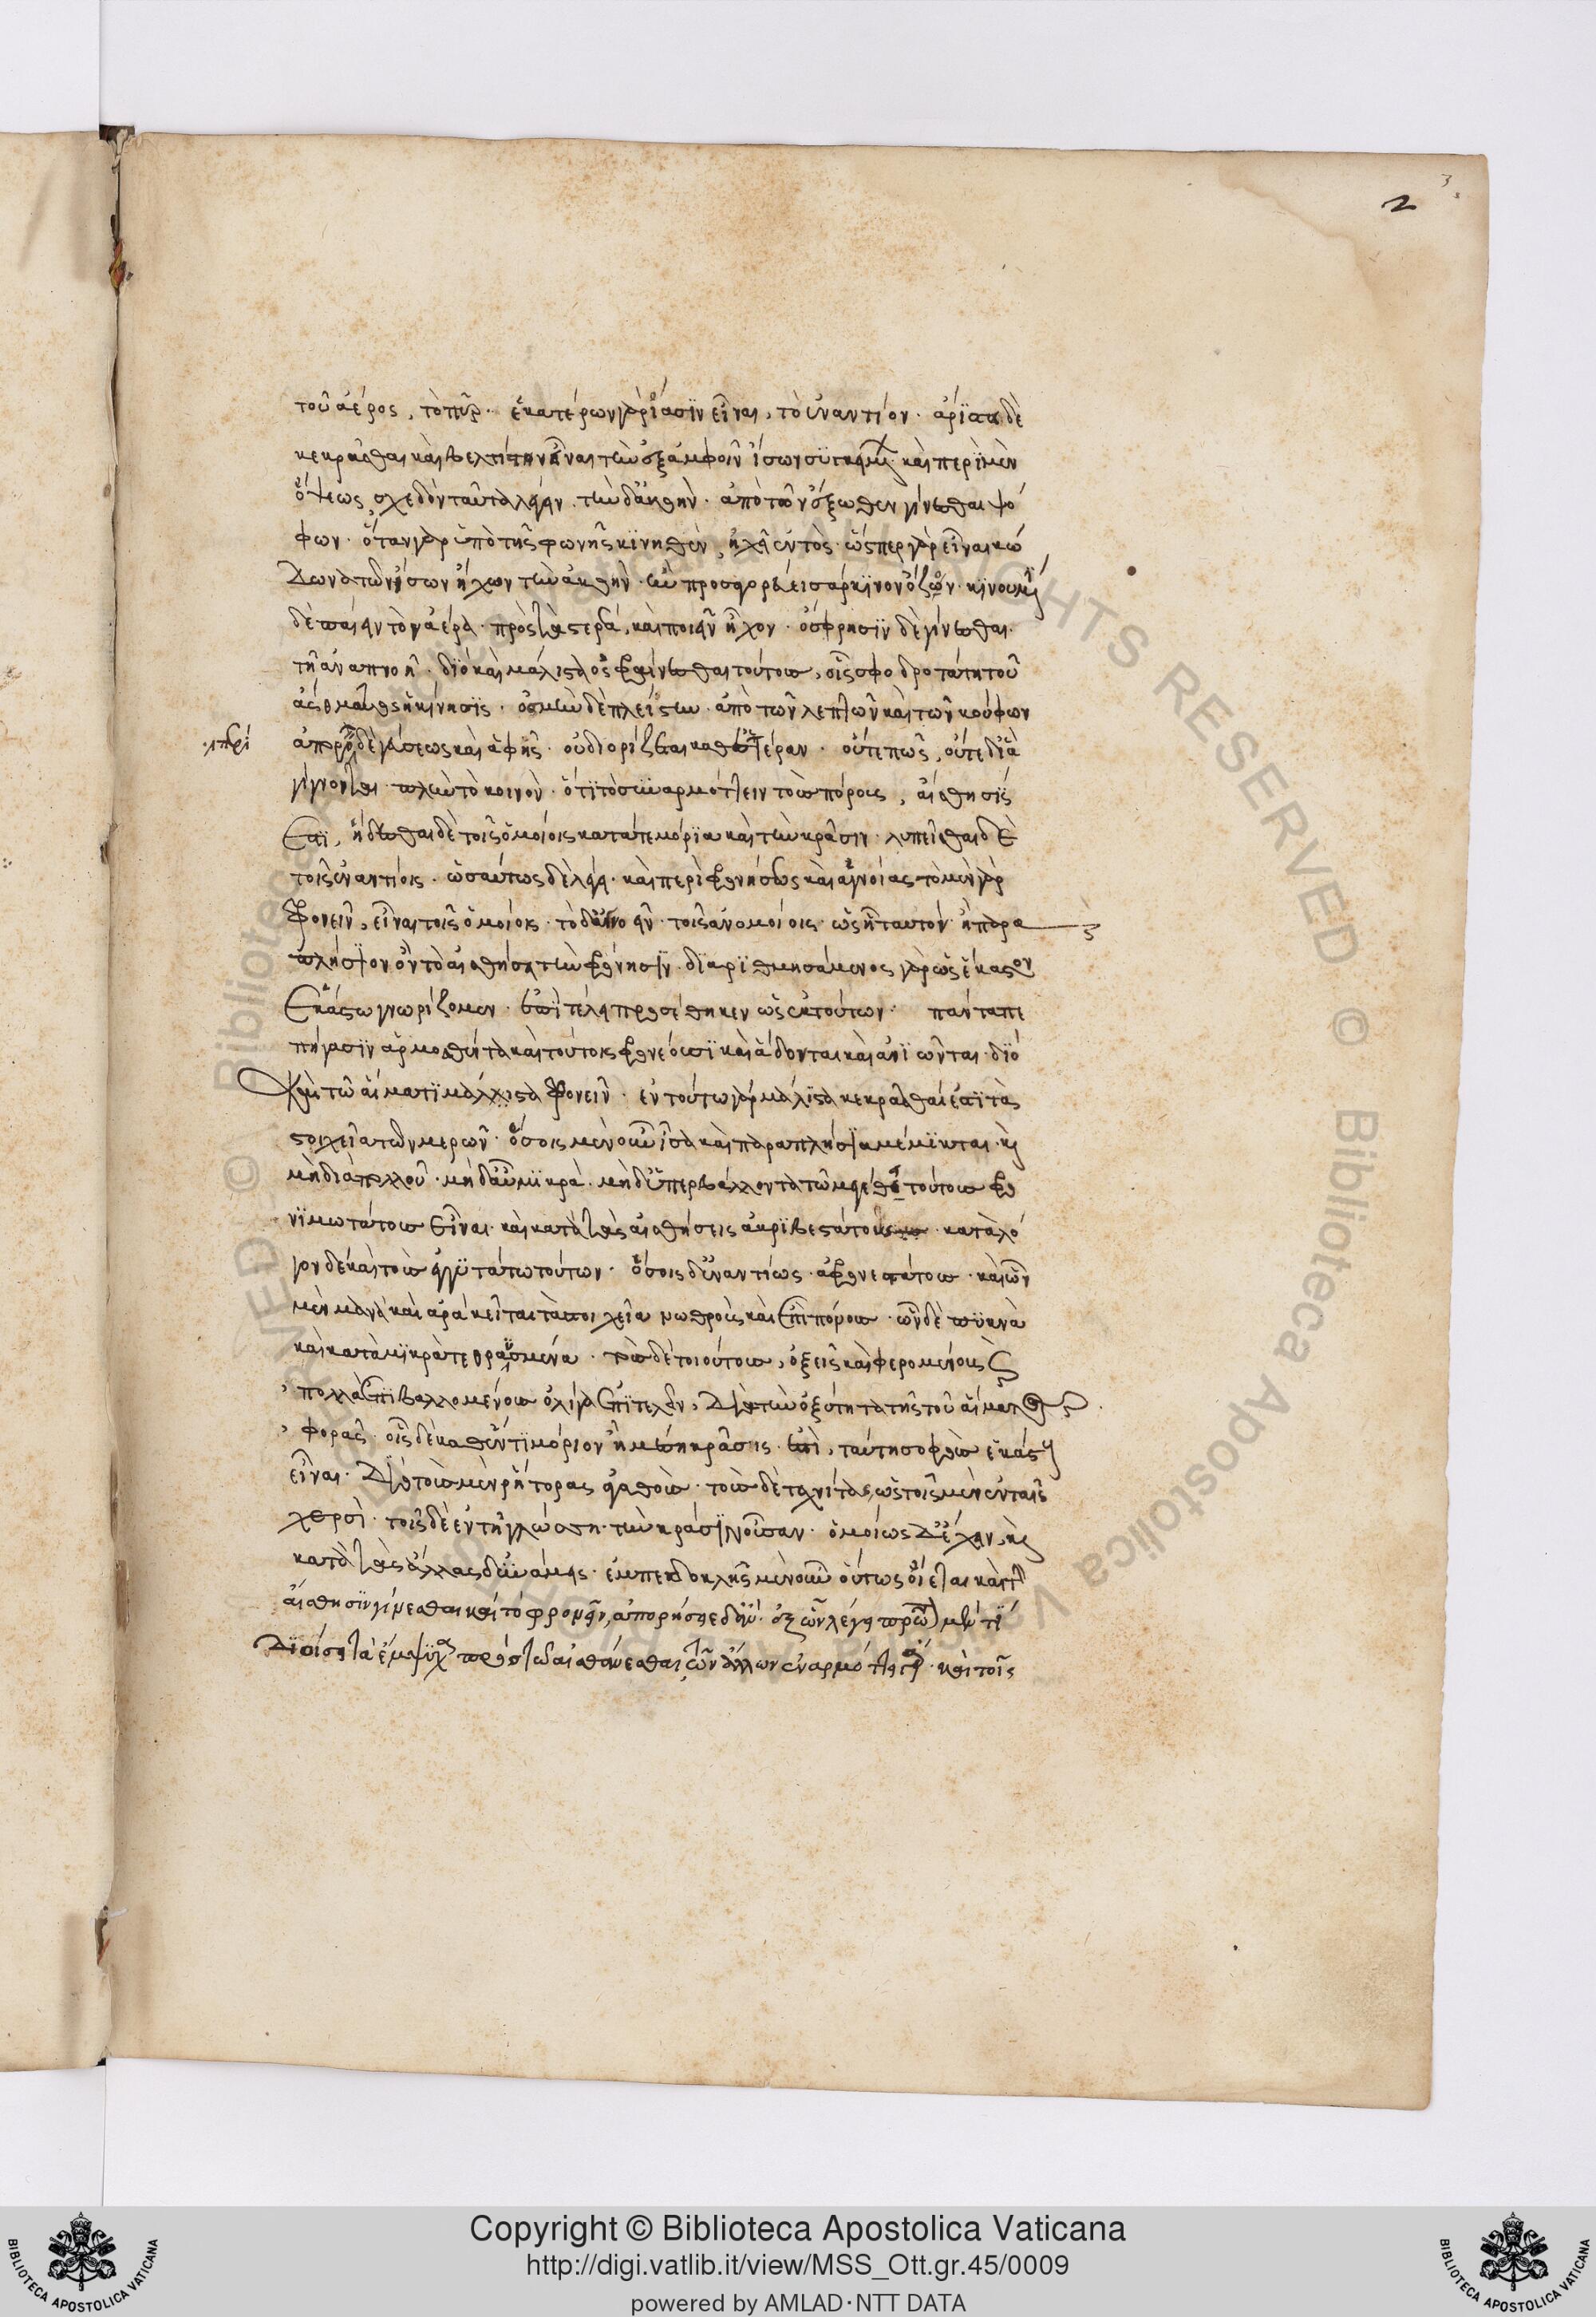 2
τοῦ ἀέρος, τὸ πῦρ. ἑκατέρων γὰρ ἴασϊν εἶναι, τὸ ἐναντίον. ἀρϊστα δὲ
κεκρᾶσθαι καὶ βελτίστην εἶναι τὴν ἐξ ἀμφοῖν ἴσων συγκειμένην. καὶ περὶ μὲν
ὄψεως σχεδὸν ταῦτα λέγει. τὴν δ' ἀκοὴν ἀπὸ τῶν ἔξωθεν γίνεσθαι ψό
φων. ὅταν γὰρ ὑπὸ τῆς φωνῆς κϊνηθῆ, ἠχεῖ ἐντός. ὥσπερ γὰρ εἶναι κώ
δωνα τῶν ἴσων ἤχων τὴν ἀκοὴν. ἣν προσαγορεύει σάρκϊνον ὄζον. κϊνουμένη
δὲ παίειν τὸν ἀέρα πρὸς τὰ στερεά, καὶ ποιεῖν ἦχον. ὄσφρησϊν δὲ γίνεσθαι
τῆ ἀναπνοῆ. δϊὸ καὶ μάλιστα ὀσφραίνεσθαι τούτους, οἷς σφοδροτάτη τοῦ
ἄσθματος ἡ κίνησϊς. ὀσμὴν δὲ πλείστην ἀπὸ τῶν λεπτῶν καὶ τῶν κούφων
περὶ
ἀπορρεῖν δὲ γεύσεως καὶ ἁφῆς. οὐ διορίζεται καθ' ἑτέραν. οὔτε πῶς, οὔτε δϊ' ἃ
γίγνονται πλὴν τὸ κοινὸν. ὅτϊ τὸ συναρμόττειν τοὺς πόρους, αἴσθησϊς
ἐστϊ, ἥδεσθαι δὲ τοῖς ὁμοίοις κατά τε μόρϊα καὶ τὴν κρᾶσιν. λυπεῖσθαι δὲ
τοῖς ἐναντίοις. ὡσαύτως δὲ λέγει καὶ περὶ φρονήσεως καὶ ἀγνοίας τὸ μὲν γὰρ
φρονεῖν, εἶναι τοῖς ὁμοίοις. τὸ δ' ἀγνοεῖν τοῖς ἀνομοίοις. ὡς ἢ ταυτὸν ἢ παρα
πλήσϊον ὂν τὸ αἰσθήσει τὴν φρόνησϊν. δϊαρϊθμησάμενος γὰρ ὡς ἕκαστον
ἑκάστω γνωρίζομεν. ἐπὶ τέλει προσέθηκεν ὡς ἐκ τούτων πάντα πε
πήγασϊν ἁρμοσθέντα καὶ τούτοις φρονέουσϊ καὶ ἅδονται καὶ ἀνϊῶνται. δϊὸ
καὶ τῶ αἵματϊ μάλλιστα φρονεῖν. ἐν τούτω γὰρ μάλϊστα κεκρᾶσθαί ἐστϊ τὰ
στοιχεῖα τῶν μερῶν. ὅσοις μὲν οὖν ἴσα καὶ παραπλήσϊα μέμϊκται. καὶ
μὴ διὰ πολλοῦ. μὴ δ' αὖ μϊκρὰ. μὴ δ' ὑπερβάλλοντα τῶ μεγέθει τούτους φρο
νϊμωτάτους εἶναι. καὶ κατὰ τὰς αἰσθήσεις ἀκρϊβεστάτους. κατὰ λό
γον δὲ καὶ τοὺς ἐγγϋτάτω τούτων. ὅσοις δ' ἐναντίως ἀφρονεστάτους. καὶ ὧν
μὲν μανὰ καὶ ἀραὰ κεῖται τὰ στοιχεῖα νωθροὺς καὶ ἐπϊπόνους. ὧν δὲ πυκνὰ
καὶ κατὰ μϊκρὰ τεθραυσμένα. τοὺς δὲ τοιούτους, ὀξεῖς καὶ φερομένους
πολλὰ ἐπϊβαλλομένους ὀλίγα ἐπϊτελεῖν, διὰ τὴν ὀξύτητα τῆς τοῦ αἵματος
φορᾶς. οἷς δὲ καθ' ἕν τϊ μόριον ἡ μέση κρᾶσις ἐστὶ, ταύτη σοφοὺς ἑκάστους
εἶναι. διὸ τοὺς μὲν ῥήτορας ἀγαθοὺς. τοὺς δὲ τεχνίτας, ὡς τοῖς μὲν ἐν ταῖς
χερσὶ. τοῖς δὲ ἐν τῆ γλώσση τὴν κρᾶσϊν οὖσαν. ὁμοίως δ' ἔχειν καὶ
κατὰ τὰς ἄλλας δυνάμεις. ἐμπεδοκλῆς μὲν οὖν οὕτως οἴεται καὶ τὴν
αἴσθησϊν γίνεσθαι καὶ τὸ φρονεῖν, ἀπορήσειε δ' ἄν τις ἐξ ὧν λέγει πρῶτον μὲν τϊ
δϊοίσει τὰ ἔμψυχα πρὸς τὸ αἰσθάνεσθαι τῶν ἄλλων ἐναρμόττει γὰρ. καὶ τοῖς
Copyright © Biblioteca Apostolica Vaticana
http://digi.vatlib.it/view/MSS_Ott.gr.45/0009
powered by AMLAD·NTT DATA